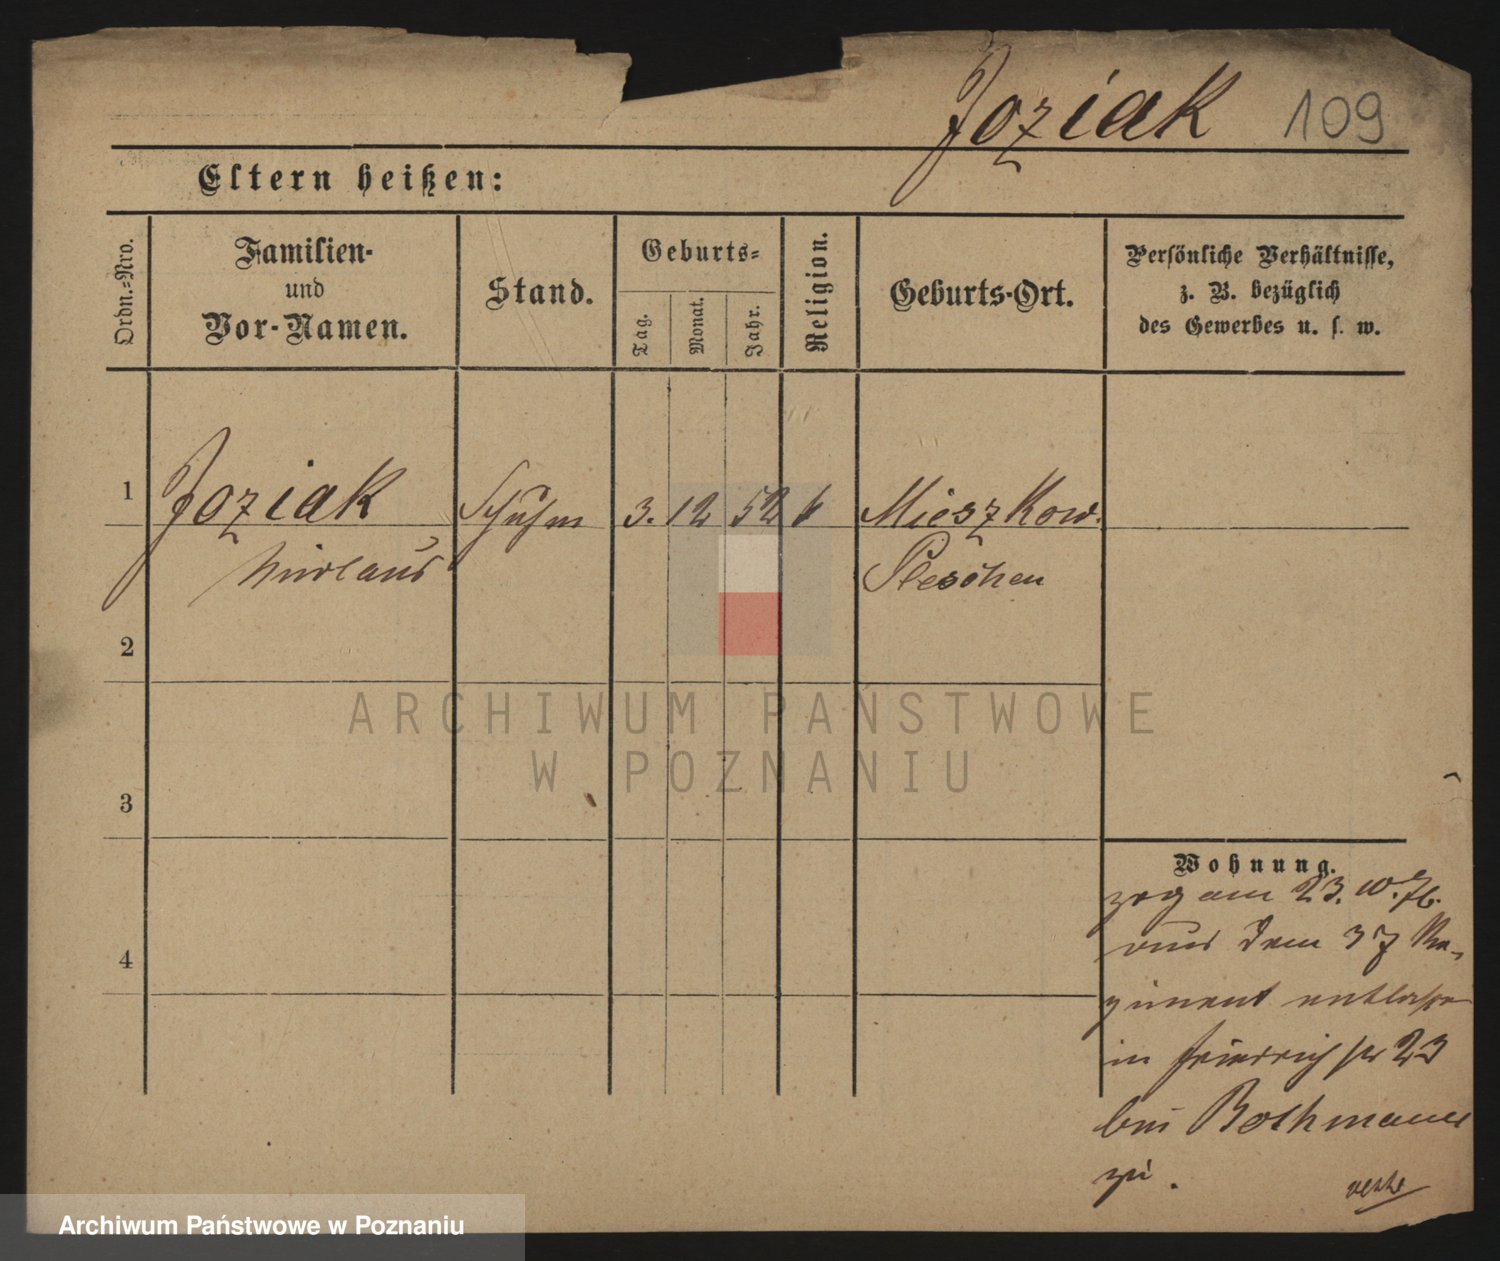 Joziak 109
Eltern heißen:
Ordn.-Nro.
Familien-
und
Vor-Namen.
Stand.
Geburts-
Tag.
Monat.
Jahr.
Religion.
Geburts-Ort.
Persönliche Verhältnisse,
z. B. bezüglich
des Gewerbes u. s. w.
1 Joziak Schuhm 3. 12 52 k Mieszkow.
Nicolaus Pleschen
2
3
4
Wohnung.
zog am 23. 10. 76.
aus dem 37 Re-
giment entlassen
in Friedrichstr 23
bei Bothmann
zu.
ARCHIWUM PAŃSTWOWE
W POZNANIU
Archiwum Państwowe w Poznaniu